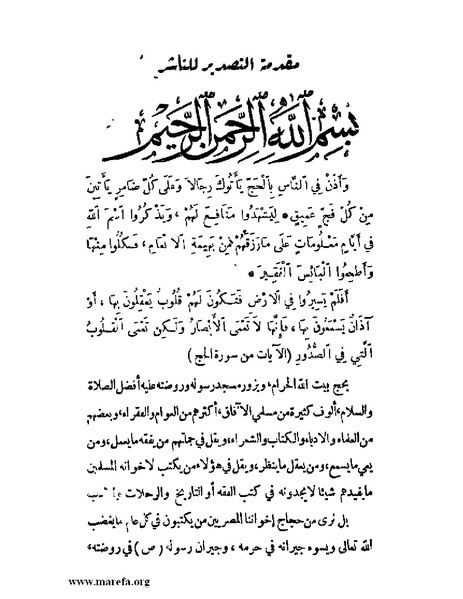 مقدمة التصدير للناشر
بِسْمِ ٱللَّهِ ٱلرَّحْمَنِ ٱلرَّحِيمِ
وَأَذِّنْ فِي النَّاسِ بِالْحَجِّ يَأْتُوكَ رِجَالًا وَعَلَى كُلِّ ضَامِرٍ يَأْتِينَ
مِنْ كُلِّ فَجٍّ عَمِيقٍ * لِيَشْهَدُوا مَنَافِعَ لَهُمْ ، وَيَذْكُرُوا اسْمَ اللهِ
فِي أَيَّامٍ مَعْلُومَاتٍ عَلَى مَارَزَقَهُمْ مِنْ بَهِيمَةِ الْأَنْعَامِ ، فَكُلُوا مِنْهَا
وَأَطْعِمُوا الْبَائِسَ الْفَقِيرَ *
أَفَلَمْ يَسِيرُوا فِي الْأَرْضِ فَتَكُونَ لَهُمْ قُلُوبٌ يَعْقِلُونَ بِهَا ، أَوْ
آذَانٌ يَسْمَعُونَ بِهَا ، فَإِنَّهَا لَا تَعْمَى الْأَبْصَارُ وَلَكِنْ تَعْمَى الْقُلُوبُ
الَّتِي فِي الصُّدُورِ (الآيات من سورة الحج)
يحج بيت الله الحرام ، ويزور مسجد رسوله وروضته عليه أفضل الصلاة
والسلام ، ألوف كثيرة من مسلمي الآفاق ، أكثرهم من العوام والفقراء ، وبعضهم
من العلماء والادباء والكتاب والشعراء ، ويقل في جملتهم من يفقه ما يعمل ، ومن
يعي ما يسمع ، ومن يعقل ما ينظر ، ويقل في هؤلاء من يكتب لاخوانه المسلمين
ما يفيدهم شيئا لا يجدونه في كتب الفقه أو التاريخ والرحلات
بل نرى من حجاج إخواننا المصريين من يكتبون في كل عام ما يغضب
الله تعالى ويسوء جيرانه في حرمه ، وجيران رسوله (ص) في روضته
www.marefa.org